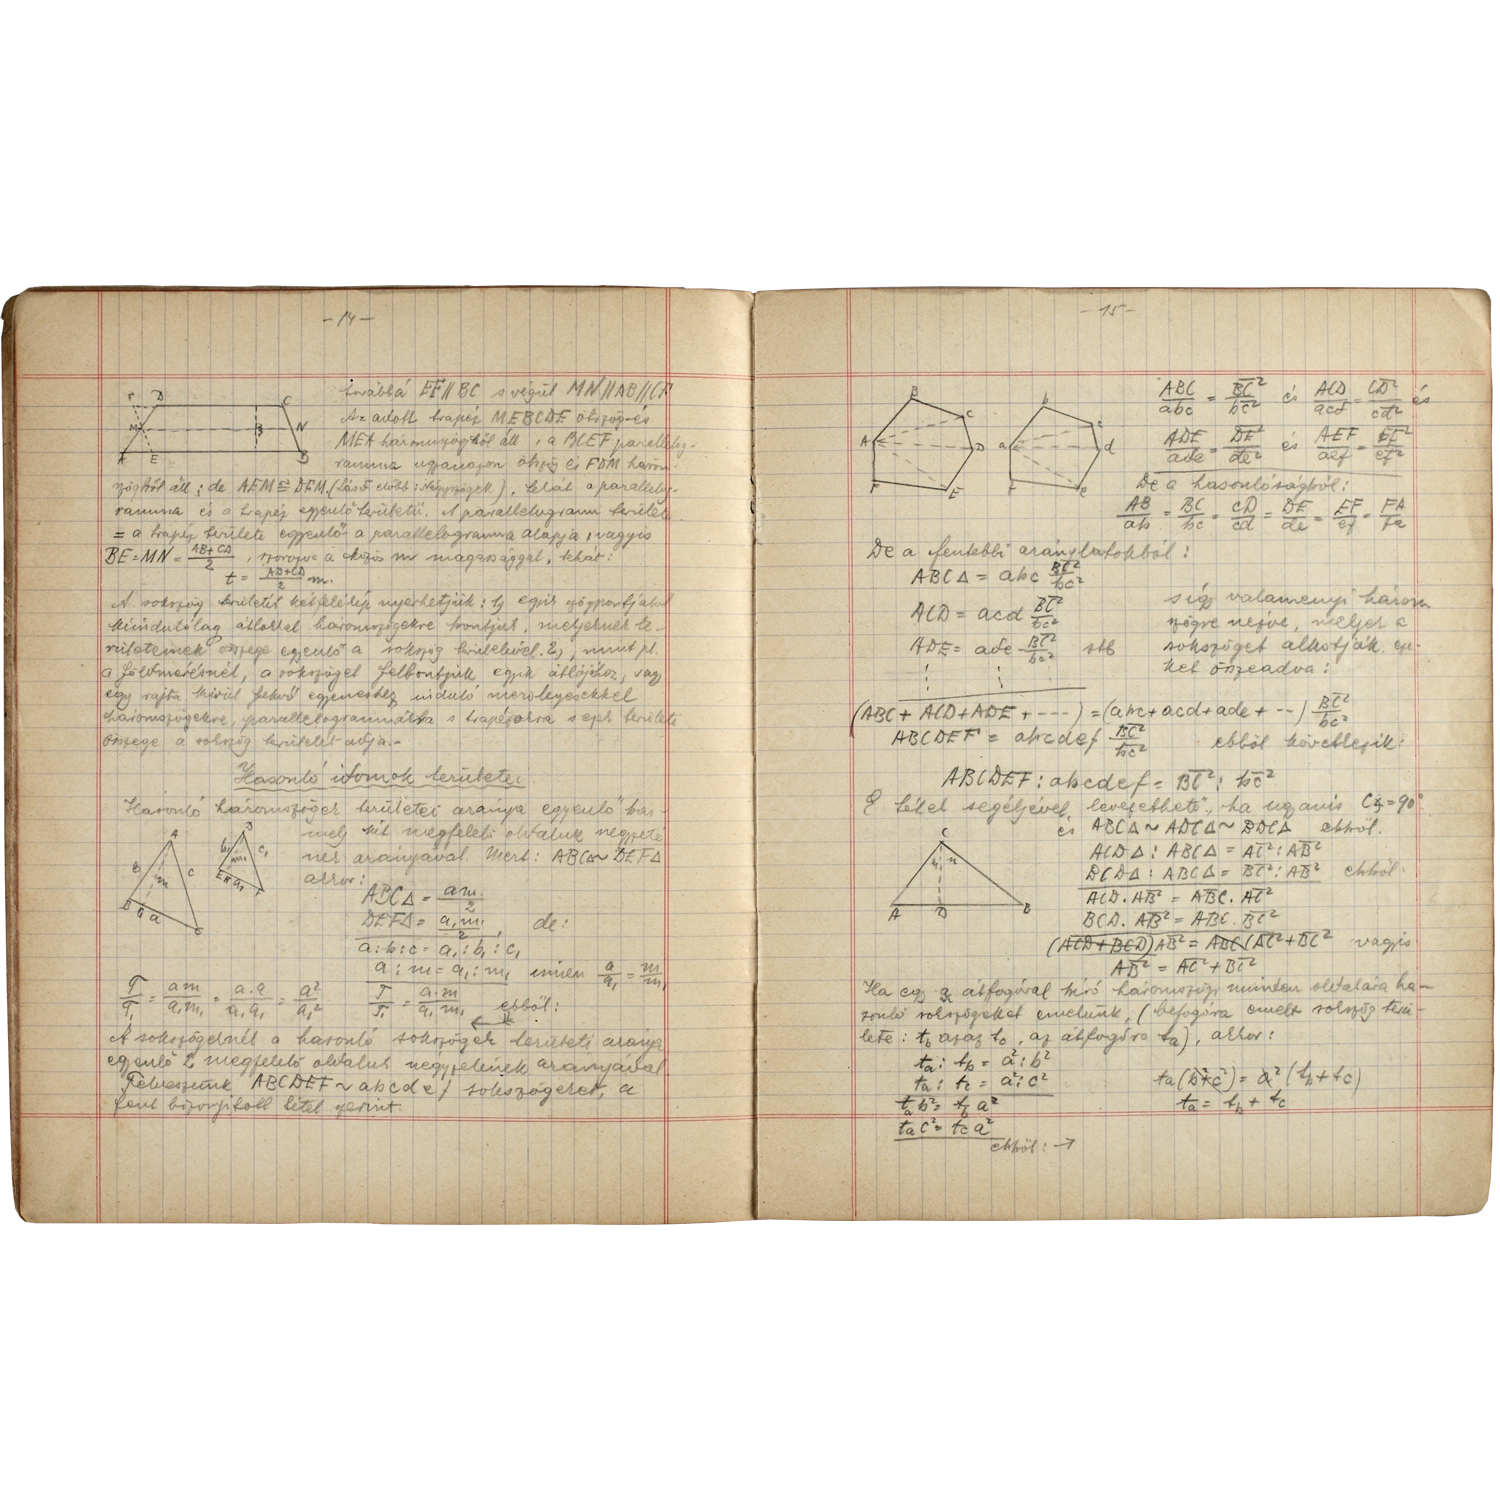 - 14 -
továbbá EF // BC s végül MN // AB // CF
Az adott trapéz MEBCDE ötszög és
MEA háromszögből áll, a BCEF parallelog-
ramma ugyanazon ötszög és FDM három-
szögből áll; de AEM ≅ DFM, (Lásd előbb: Négyszögek), tehát a parallelog-
ramma és a trapéz egyenlő területű. A parallelogramm terület
= a trapéz területe egyenlő a parallelogramma alapja, vagyis
BE = MN = AB+CD / 2, szorozva a közös m magassággal, tehát:
t = AB+CD / 2 m.
A sokszög területét kétféleképp nyerhetjük: 1, egyik szögpontjából
kiindulólag átlókkal háromszögekre bontjuk, melyeknek te-
rületeinek összege egyenlő a sokszög területével. 2, mint pl.
a földmérésnél, a sokszöget felbontjuk egyik átlójához, vagy
egy rajta kívül fekvő egyeneshez induló merőlegesekkel
háromszögekre, parallelogrammákra s trapézokra s ezek területe
összege a sokszög területét adja.-
Hasonló idomok területei
Hasonló háromszögek területei aránya egyenlő bár-
mely két megfelelő oldaluk négyzeté
nek arányával. Mert: ABC△ ~ DEF△
akkor:
ABC△ = am / 2
DEF△ = a₁m₁ / 2, de:
a : b : c = a₁ : b₁ : c₁
a : m = a₁ : m₁ innen a/a₁ = m/m₁
T/T₁ = a.m / a₁m₁ ebből:
T/T₁ = am/a₁m₁ = a.a/a₁a₁ = a²/a₁²
A sokszögeknél a hasonló sokszögek területi aránya
egyenlő 2 megfelelő oldaluk négyzetének arányával
Felveszünk ABCDEF ~ abcdef sokszögeket, a
fent bizonyított tétel szerint.
- 15 -
ABC/abc = BC²/bc² és ACD/acd = CD²/cd² és
ADE/ade = DE²/de² és AEF/aef = EF²/ef²
De a hasonlóságból:
AB/ab = BC/bc = CD/cd = DE/de = EF/ef = FA/fa
De a fentebbi aránylatokból:
ABC△ = abc BC²/bc²
ACD = acd BC²/bc²
ADE = ade BC²/bc² stb
s így valamenyi három
szögre nézve, melyek a
sokszöget alkotják, eze-
ket összeadva:
(ABC + ACD + ADE + ----) = (abc + acd + ade + --) BC²/bc²
ABCDEF = abcdef BC²/bc² ebből következik:
ABCDEF : abcdef = BC² : bc²
E tétel segéljével levezethető, ha ugyanis C∢ = 90°
és ABC△ ~ ADC△ ~ BDC△ ebből.
ACD△ : ABC△ = AC² : AB²
BCD△ : ABC△ = BC² : AB² ebből.
ACD . AB² = ABC . AC²
BCD . AB² = ABC . BC²
(ACD + BCD) AB² = ABC (AC² + BC² vagyis
AB² = AC² + BC²
Ha egy a átfogóval biró háromszög minden oldalára ha-
sonló sokszögeket emelünk, (befogóra emelt sokszög terü-
lete: tb azaz tc, az átfogóra ta), akkor:
ta : tb = a² : b²
ta : tc = a² : c²
ta b² = tb a²
ta c² = tc a²
ebből: →
ta (b² + c²) = a² (tb + tc)
ta = tb + tc